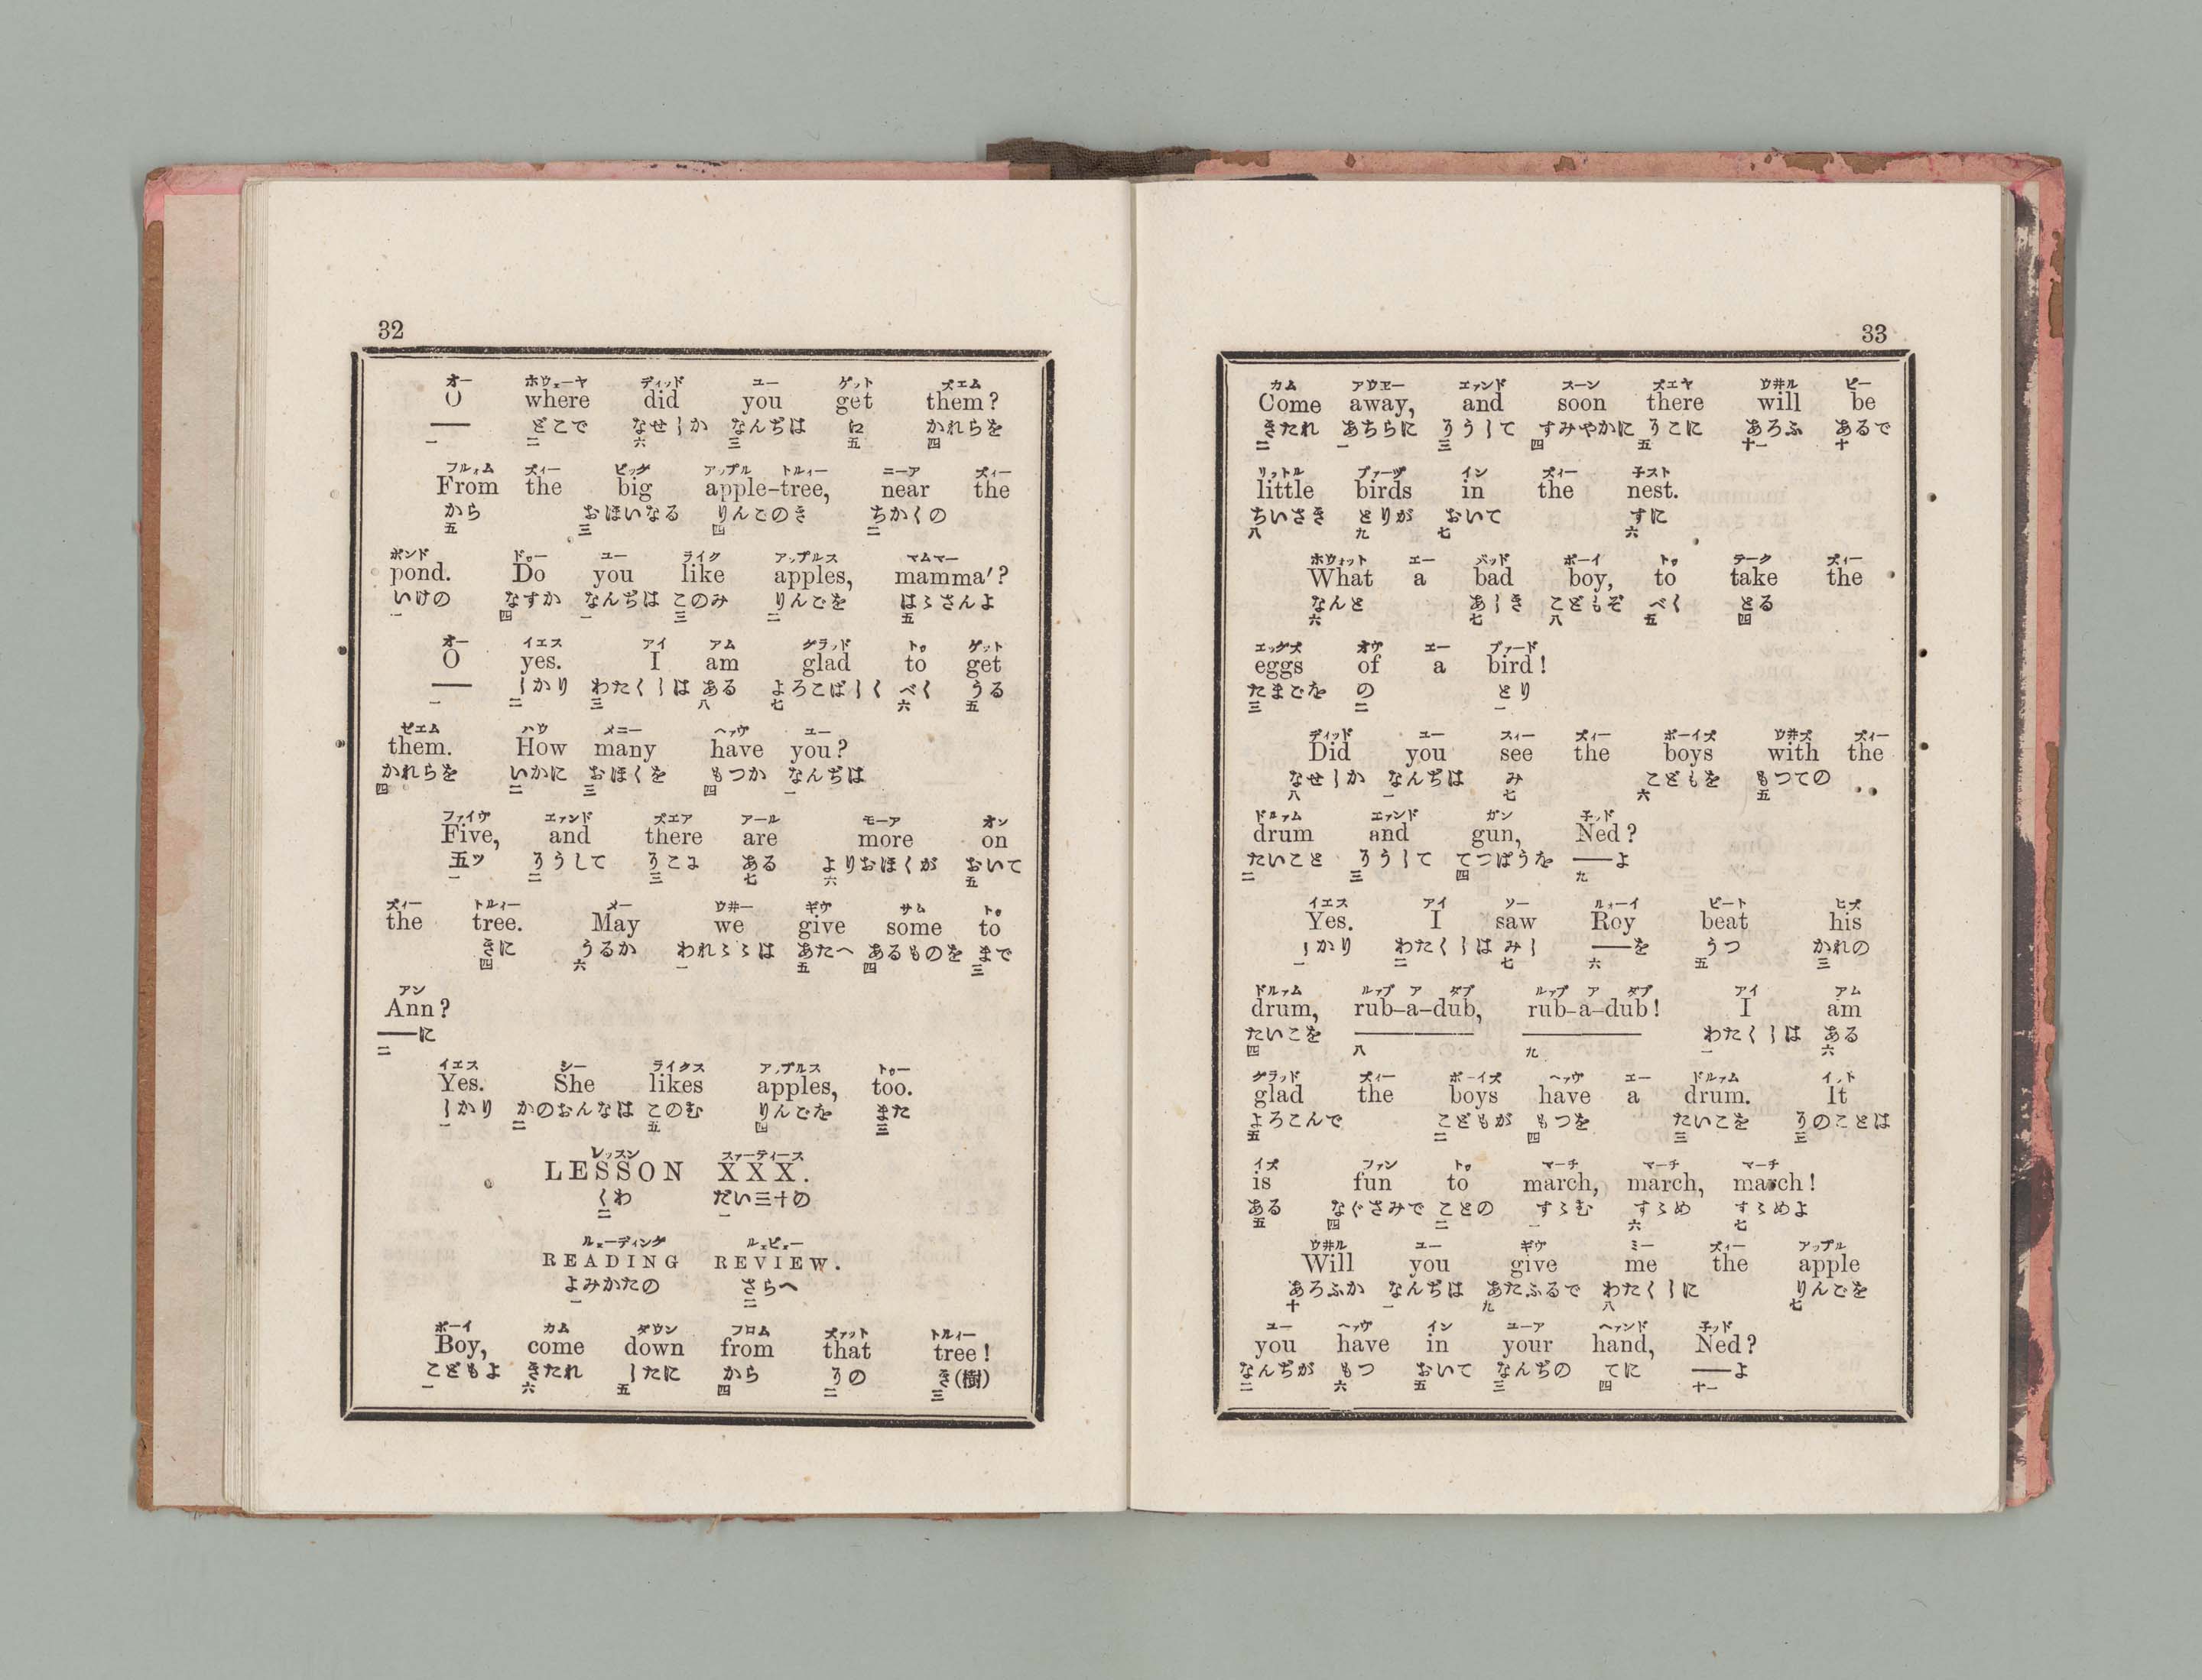 32
オー ホウェーヤ ディッド ユー ゲット ズエム
O where did you get them?
—— どこで なせしか なんぢは 𛀁 かれらを
一 二 六 三 五 四
フルォム ズィー ビッグ アップル トルィー ニーア ズィー
From the big apple-tree, near the
から おほいなる りんごのき ちかくの
五 三 四 二
ポンド ドゥー ユー ライク アップルス マムマー
pond. Do you like apples, mamma'?
いけの なすか なんぢは このみ りんごを はゝさんよ
一 四 一 三 二 五
オー イエス アイ アム グラッド トゥ ゲット
O yes. I am glad to get
—— しかり わたくしは ある よろこばしく べく うる
一 二 三 八 七 六 五
ゼエム ハウ メニー ヘァヴ ユー
them. How many have you?
かれらを いかに おほくを もつか なんぢは
四 二 三 四 一
ファイヴ エァンド ズエア アール モーア オン
Five, and there are more on
五ツ そうして そこに ある よりおほくが おいて
一 二 三 七 六 五
ズィー トルィー メー ウ井ー ギヴ サム トゥ
the tree. May we give some to
きに うるか われゝゝは あたへ あるものを まで
四 六 一 五 四 三
アン
Ann?
——に
二
イエス シー ライクス アップルス トゥー
Yes. She likes apples, too.
しかり かのおんなは このむ りんごを また
一 二 五 四 三
レッスン スァーティース
LESSON XXX.
くわ だい三十の
二 一
ルェーディング ルェビュー
READING REVIEW.
よみかたの さらへ
一 二
ボーイ カム ダウン フロム ズァット トルィー
Boy, come down from that tree!
こどもよ きたれ したに から その き(樹)
一 六 五 四 二 三
33
カム アウエー エァンド スーン ズエヤ ウ井ル ビー
Come away, and soon there will be
きたれ あちらに そうして すみやかに そこに あろふ あるで
二 一 三 四 五 十一 十
リットル ブァーヅ イン ズィー 子スト
little birds in the nest.
ちいさき とりが おいて すに
八 九 七 六
ホウォット エー バッド ボーイ トゥ テーク ズィー
What a bad boy, to take the
なんと あしき こどもぞ べく とる
六 七 八 五 四
エッグズ オヴ エー ブァード
eggs of a bird!
たまごを の とり
三 二 一
ディッド ユー スィー ズィー ボーイズ ウ井ズ ズィー
Did you see the boys with the
なせしか なんぢは み こどもを もつての
八 一 七 六 五
ドルァム エァンド ガン 子ッド
drum and gun, Ned?
たいこと そうして てつぱうを ——よ
二 三 四 九
イエス アイ ソー ルォーイ ビート ヒズ
Yes. I saw Roy beat his
しかり わたくしは みし ——を うつ かれの
一 二 七 六 五 三
ドルァム ルァブ ア ダブ ルァブ ア ダブ アイ アム
drum, rub-a-dub, rub-a-dub! I am
たいこを —— —— わたくしは ある
四 八 九 一 六
グラッド ズィー ボーイズ ヘァヴ エー ドルァム イット
glad the boys have a drum. It
よろこんで こどもが もつを たいこを そのことは
五 二 四 三 三
イズ ファン トゥ マーチ マーチ マーチ
is fun to march, march, march!
ある なぐさみで ことの すゝむ すゝめ すゝめよ
五 四 二 一 六 七
ウ井ル ユー ギヴ ミー ズィー アップル
Will you give me the apple
あろふか なんぢは あたふるで わたくしに りんごを
十 一 九 八 七
ユー ヘァヴ イン ユーア ヘァンド 子ッド
you have in your hand, Ned?
なんぢが もつ おいて なんぢの てに ——よ
二 六 五 三 四 十一